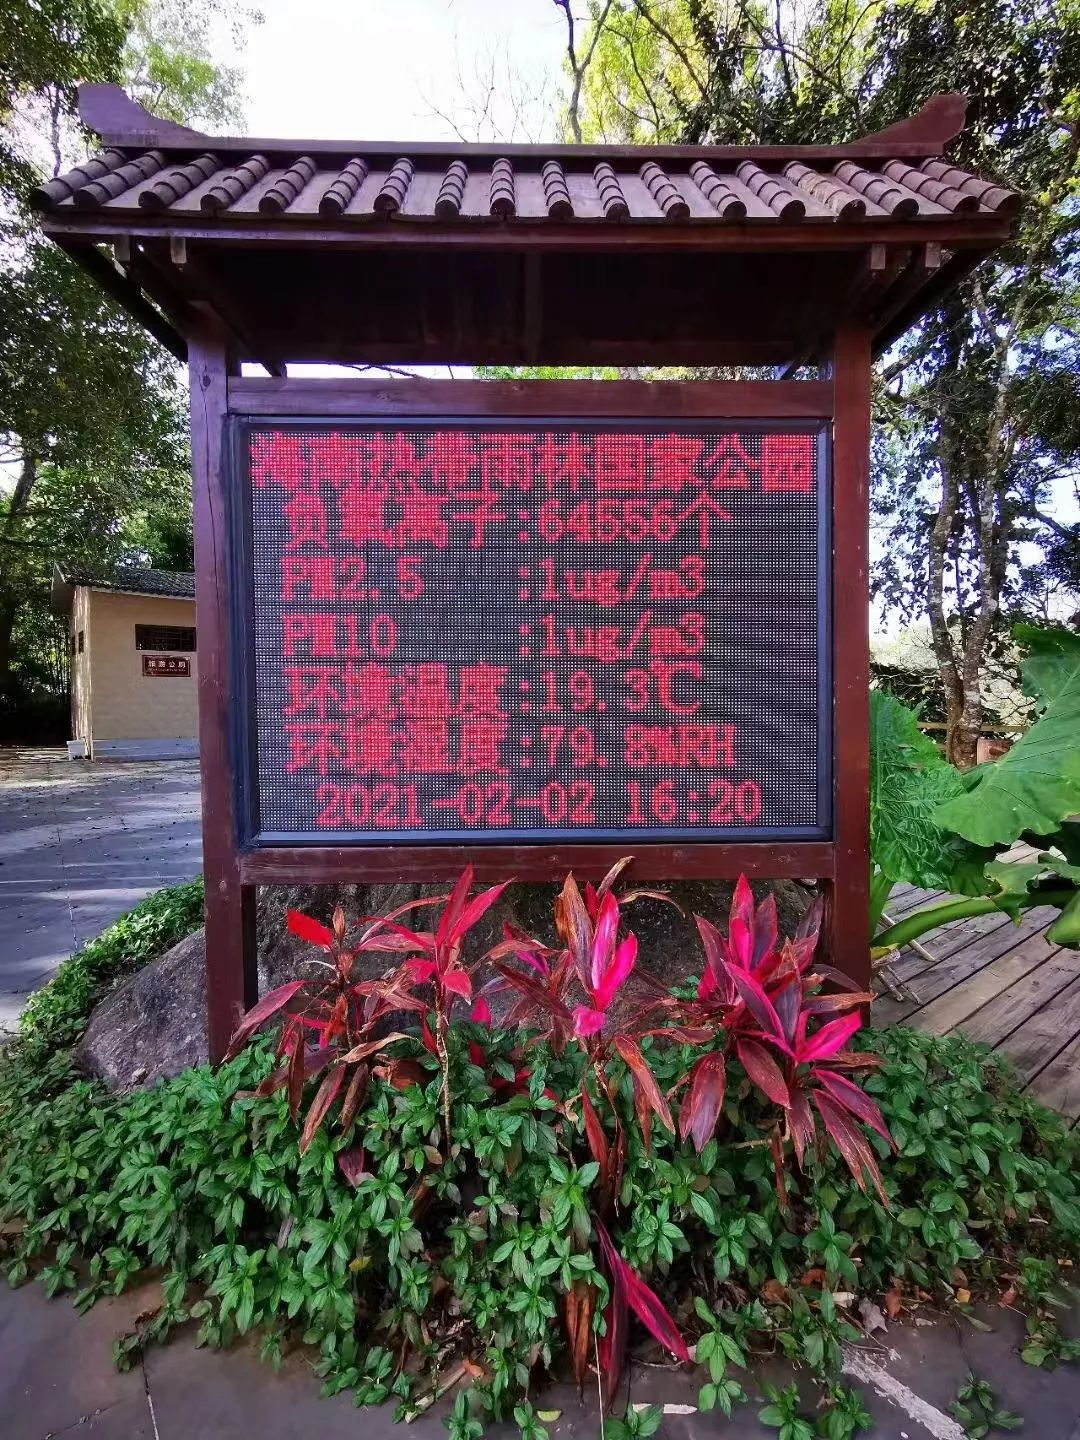 海南热带雨林国家公园
负氧离子:64656个
PM2.5 :1ug/m3
PM10 :1ug/m3
环境温度:19.3℃
环境湿度:79.8%RH
2021-02-02 16:20
旅游公厕